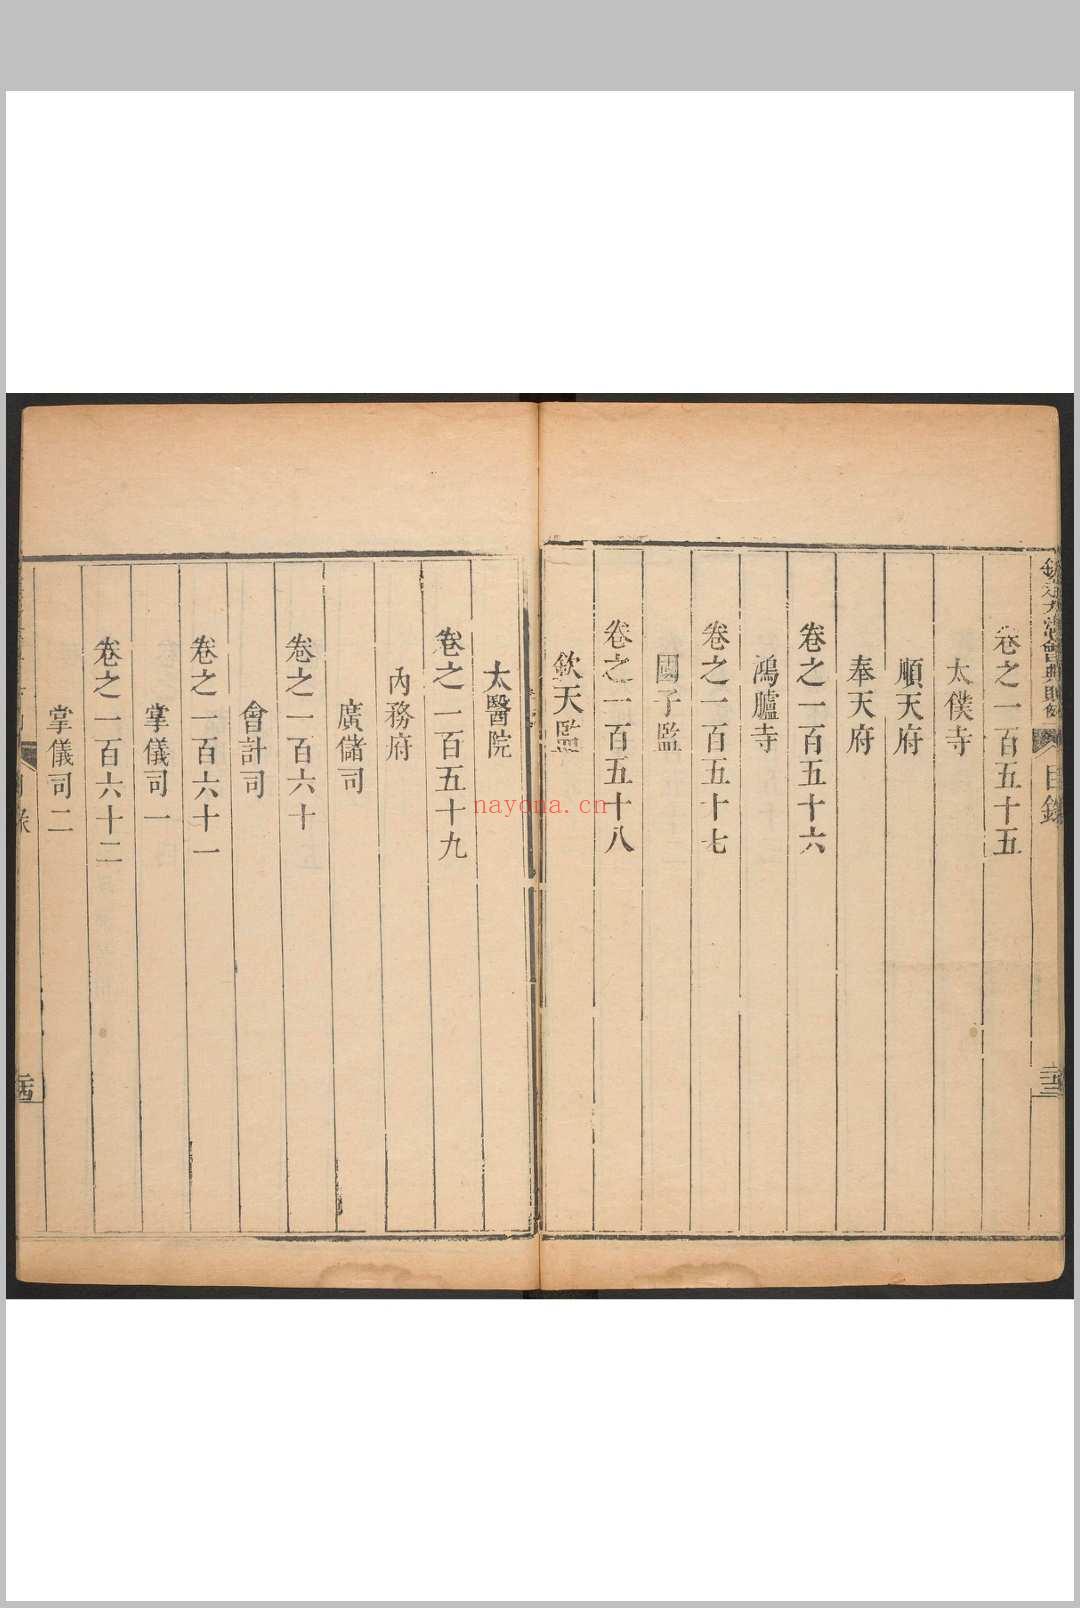 欽定大清會典則例
目錄
二十三
卷之一百五十五
太僕寺
順天府
奉天府
卷之一百五十六
鴻臚寺
卷之一百五十七
國子監
卷之一百五十八
欽天監
太醫院
卷之一百五十九
內務府
廣儲司
卷之一百六十
會計司
卷之一百六十一
掌儀司一
卷之一百六十二
掌儀司二
目錄
二十四
nayona.cn